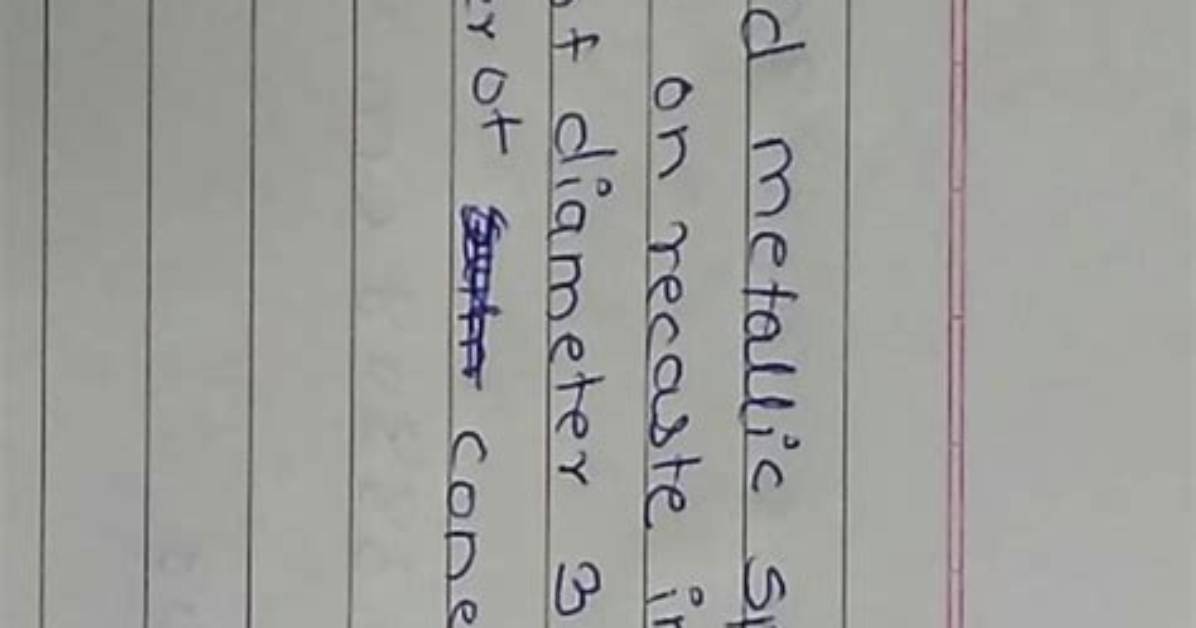 d metallic
on recaste
of diameter 3
er of cone